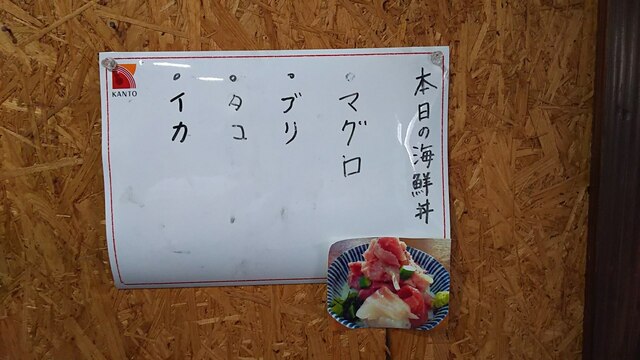 本日の海鮮丼
。マグロ
。ブリ
。タコ
。イカ
KANTO